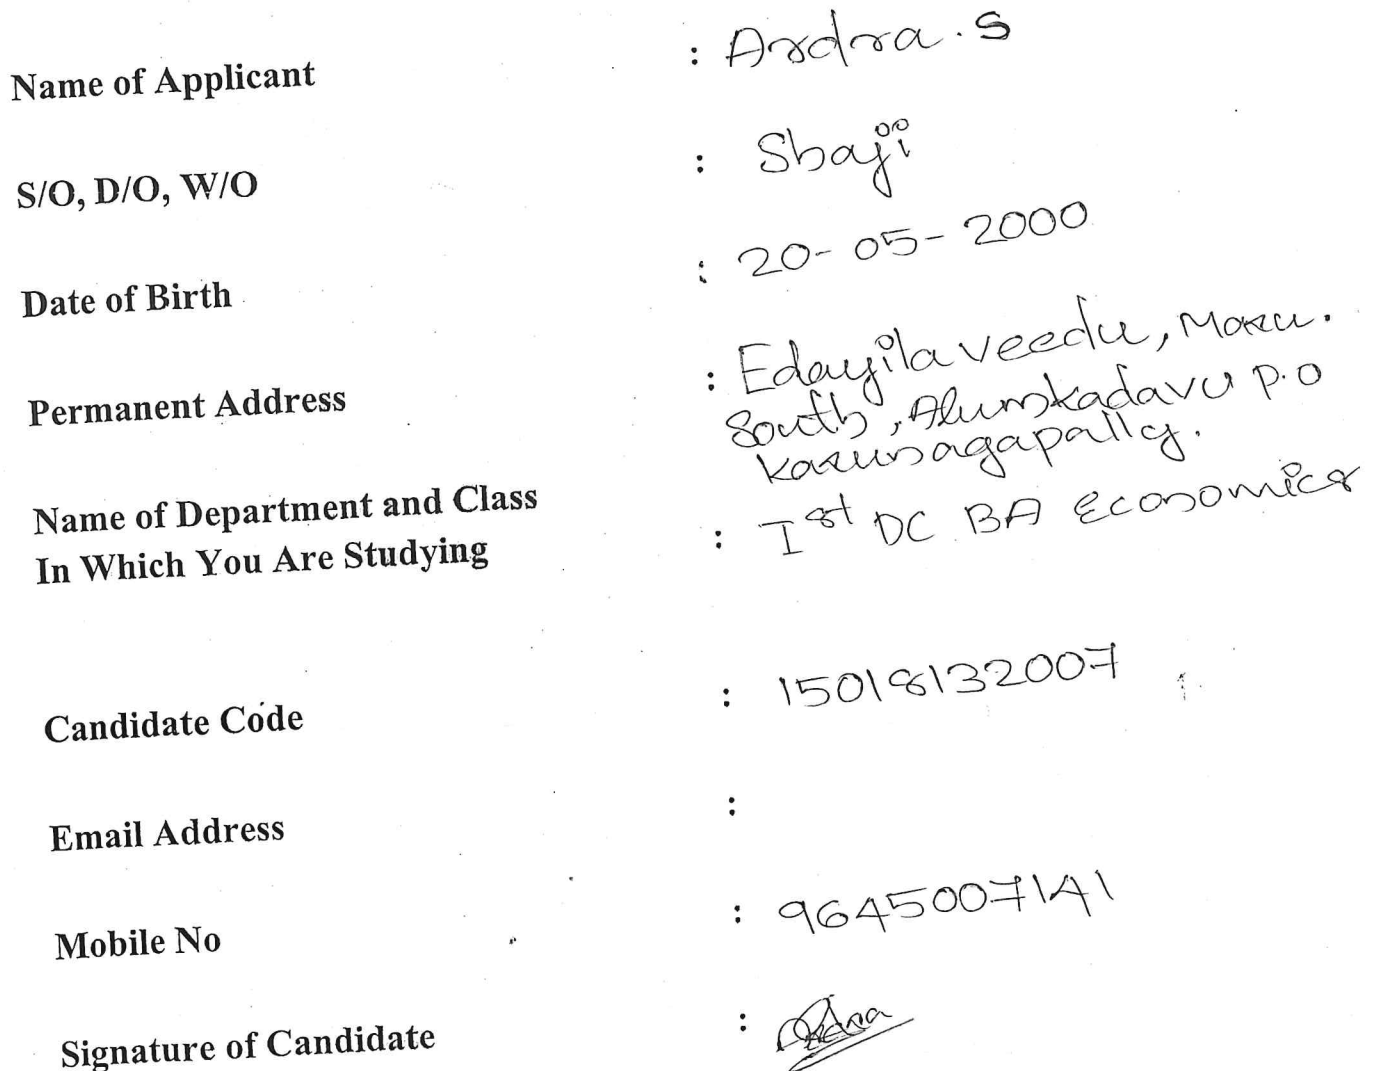 Name of Applicant : Ardra . S
S/O, D/O, W/O : Shaji
Date of Birth : 20-05-2000
Permanent Address : Edayilaveedu, Maru.
South, Alumkadavu P.O
Karunagapally.
Name of Department and Class
In Which You Are Studying : Ist DC BA Economics
Candidate Code : 15018132007
Email Address :
Mobile No : 9645007141
Signature of Candidate : Ardra